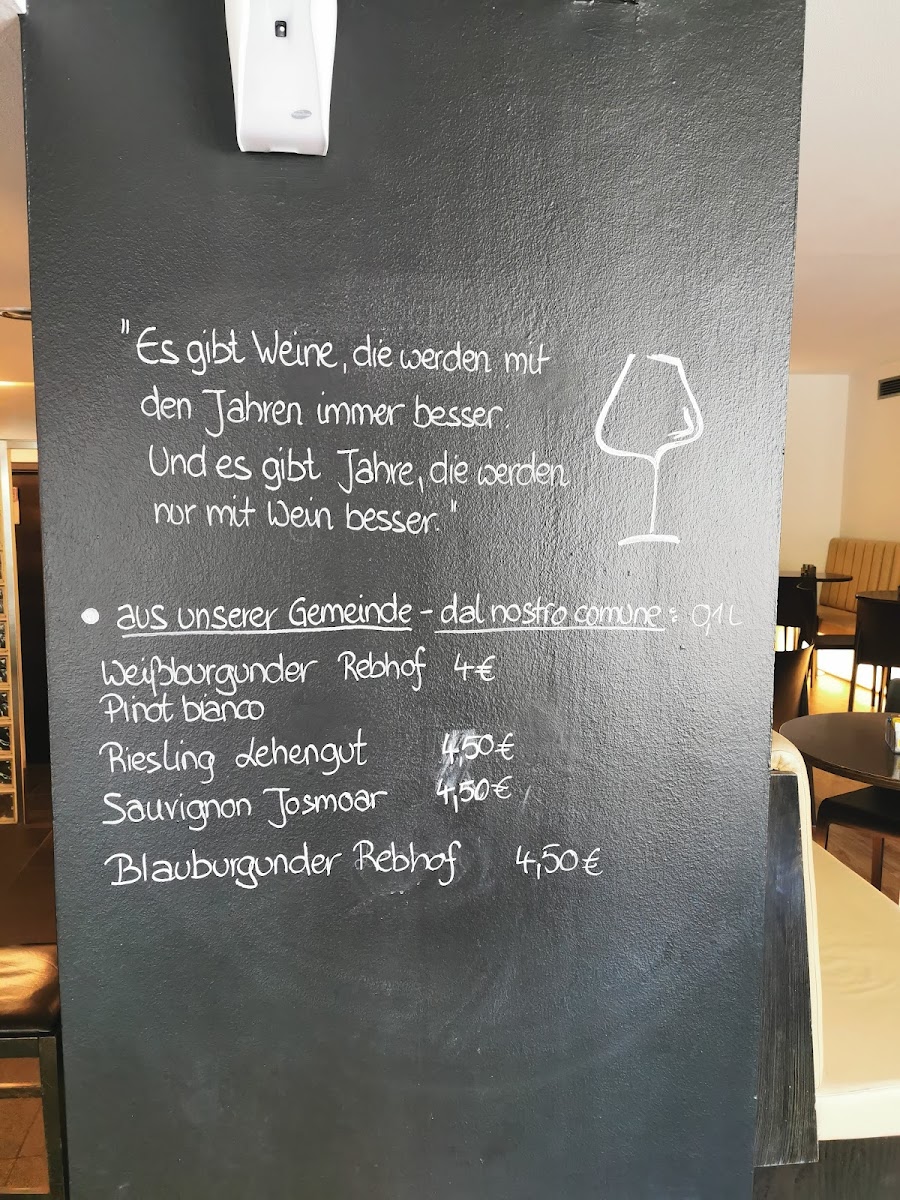 "Es gibt Weine, die werden mit
den Jahren immer besser.
Und es gibt Jahre, die werden
nur mit Wein besser."
• aus unserer Gemeinde - dal nostro comune: 0,1 L
Weißburgunder Rebhof 4€
Pinot bianco
Riesling Lehengut 4,50€
Sauvignon Josmoar 4,50€
Blauburgunder Rebhof 4,50€